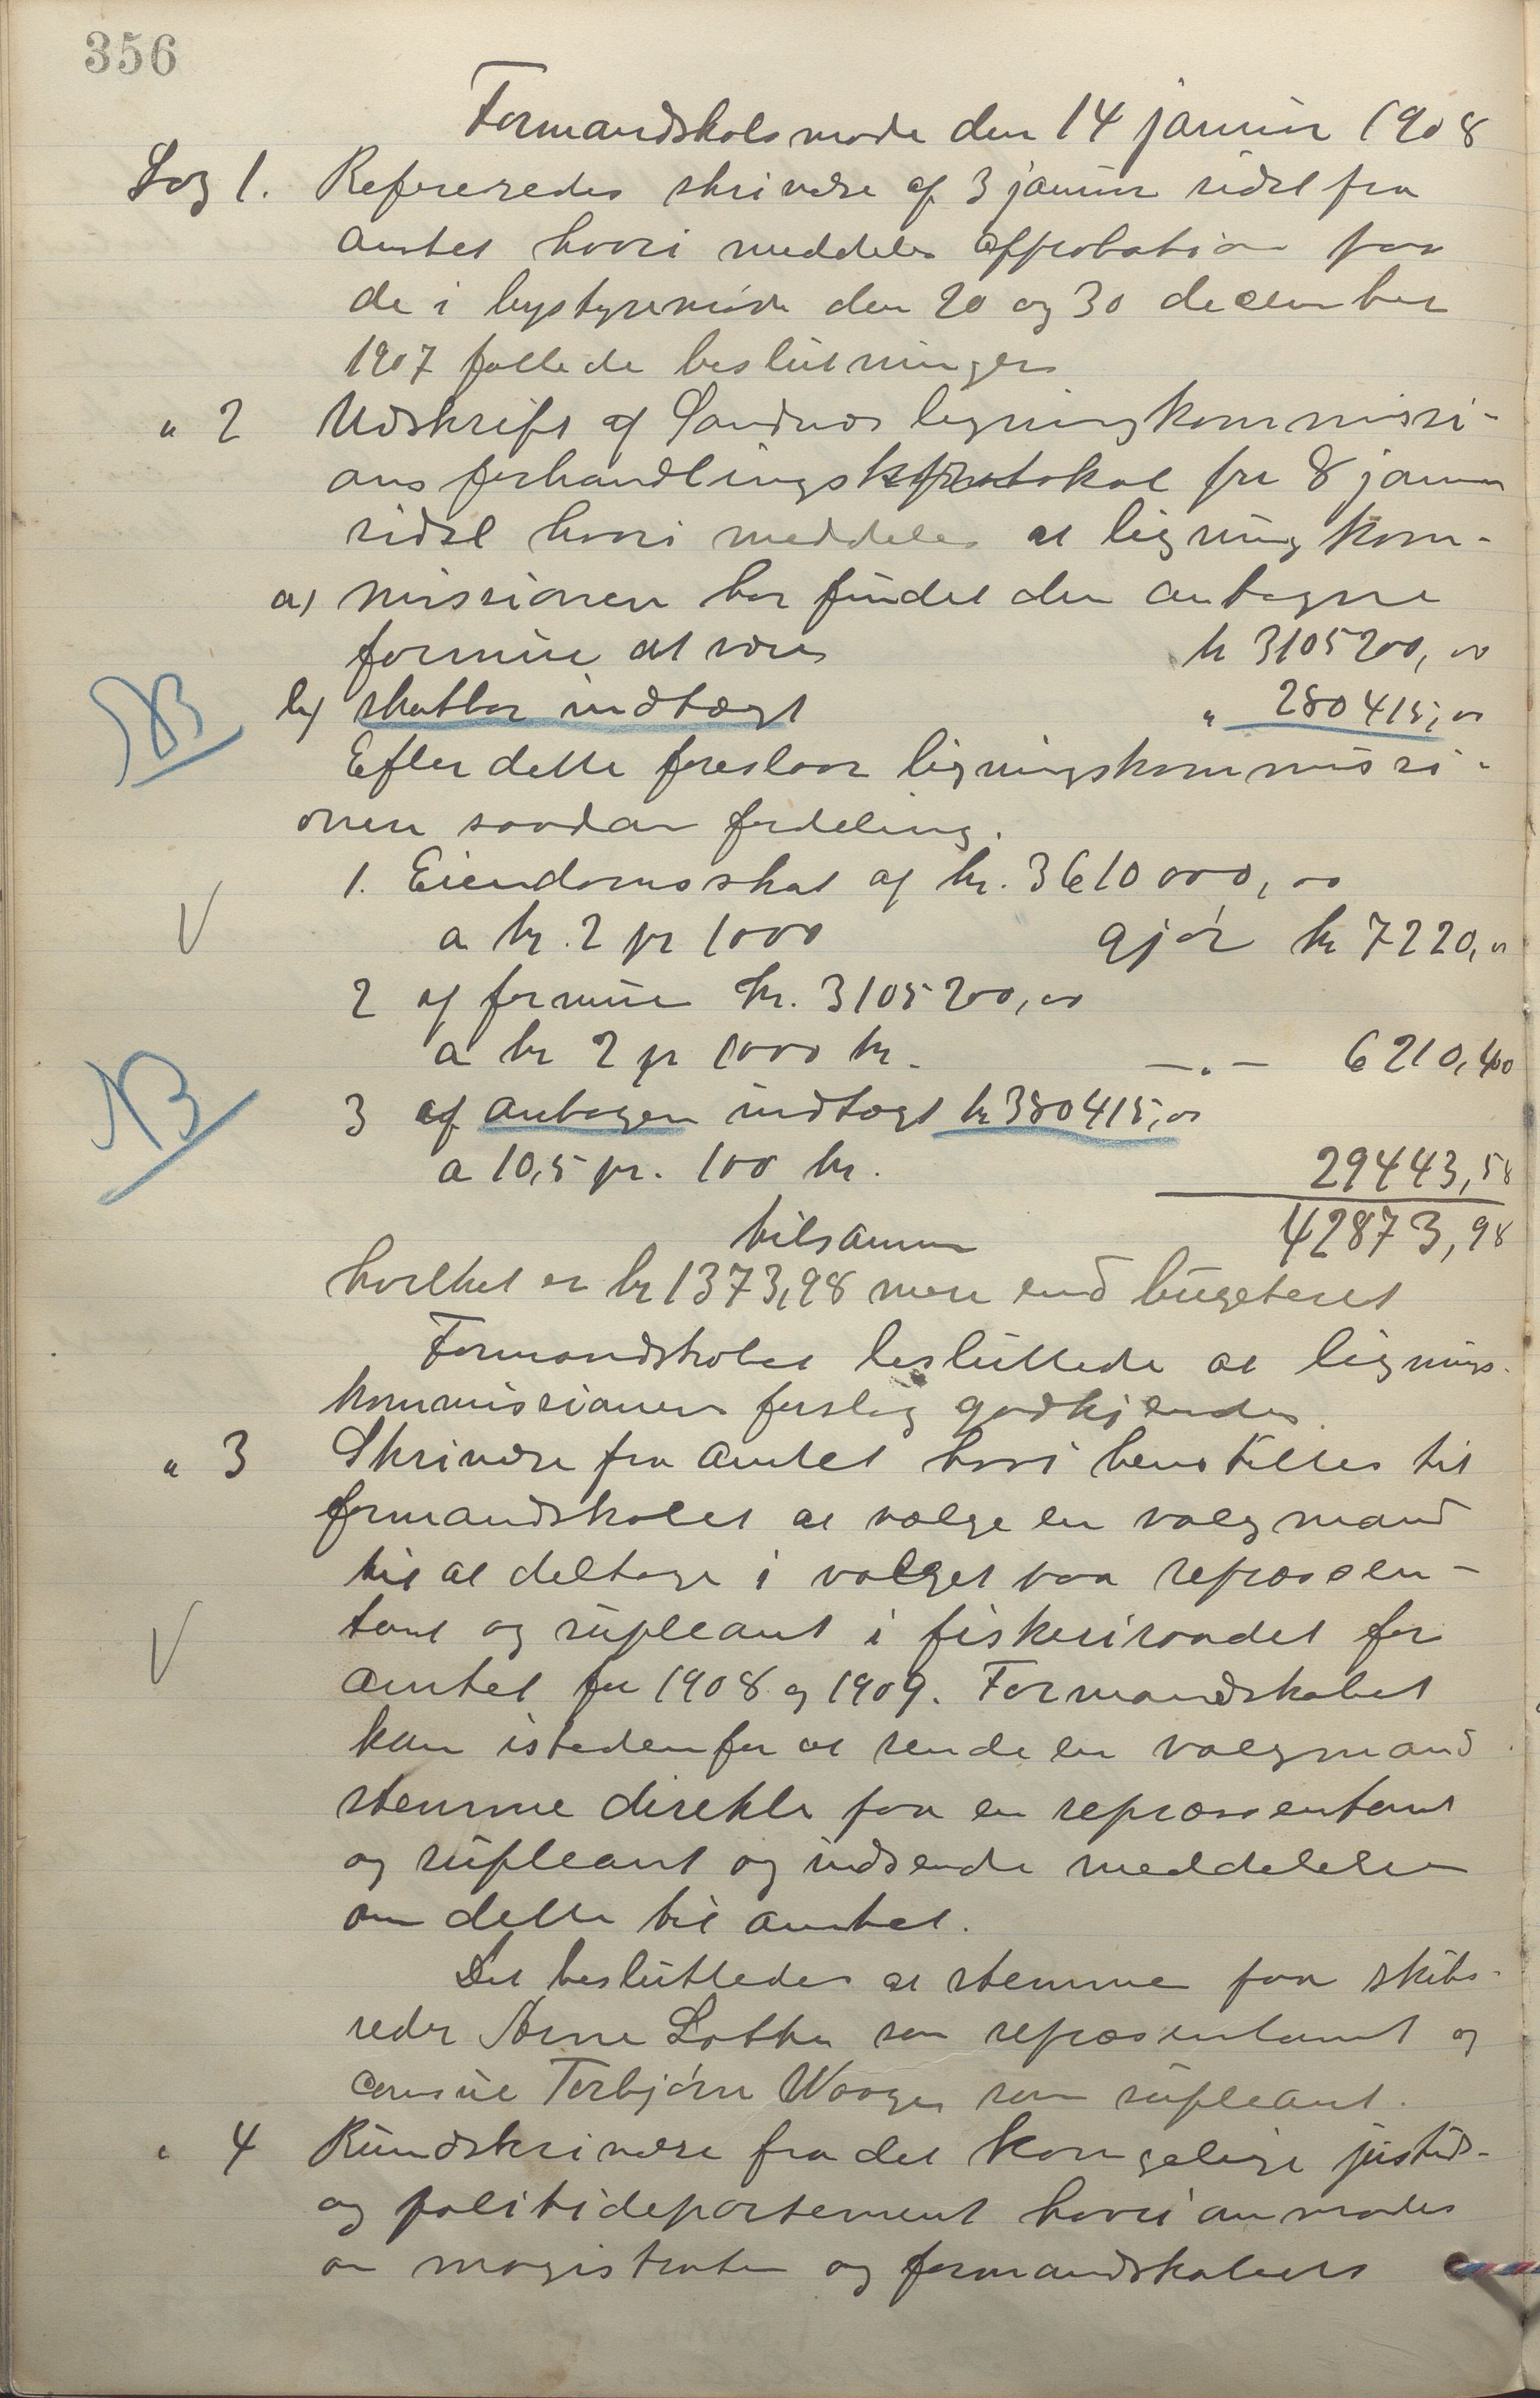 356
Formandskabsmøde den 14 januar 1908
Sag 1. Refereredes skrivelse af 3 januar sidst fra
amtet hvori meddeles approbation paa
de i bystyremøde den 20 og 30 december
1907 fattede beslutninger
" 2 Udskrift af Sandnes ligningskommissi-
ons forhandlingsprotokol fra 8 januar
sidst hvori meddeles at ligningskom-
a) missionen har fundet den antagne
formue at være kr 3105200,00
NB b) skatbar indtægt " 280415,00
Efter dette foreslaar ligningskommissi-
onen saadan fordeling.
1. Eiendomsskat af kr. 3610000,00
V a kr. 2 pr 1000 gjør kr 7220,00
2 af formue kr. 3105200,00
a kr 2 pr 1000 kr. —"— 6210,40
NB 3 af antagen indtægt kr 380415,00
a 10,5 pr. 100 kr. 29443,58
tilsammen 42873,98
hvilket er kr 1373,98 mere end bugeteret
Formandskabet besluttede at lignings-
kommissionens forslag godkjendes.
" 3 Skrivelse fra amtet hvori henstilles til
formandskabet at vælge en valgmand
til at deltage i valget paa repræsen-
V tant og supleant i fiskeriraadet for
amtet for 1908 og 1909. Formandskabet
kan istedenfor at sende en valgmand
stemme direkte paa en repræsentant
og supleant og indsende meddelelse
om dette til amtet.
Det besluttedes at stemme paa skibs-
reder Arne Lothe som repræsentant og
consul Torbjørn Waage som supleant.
" 4 Rundskrivelse fra det kongelige justits-
og politidepartement hvori anmodes
om magistratens og formandskabets